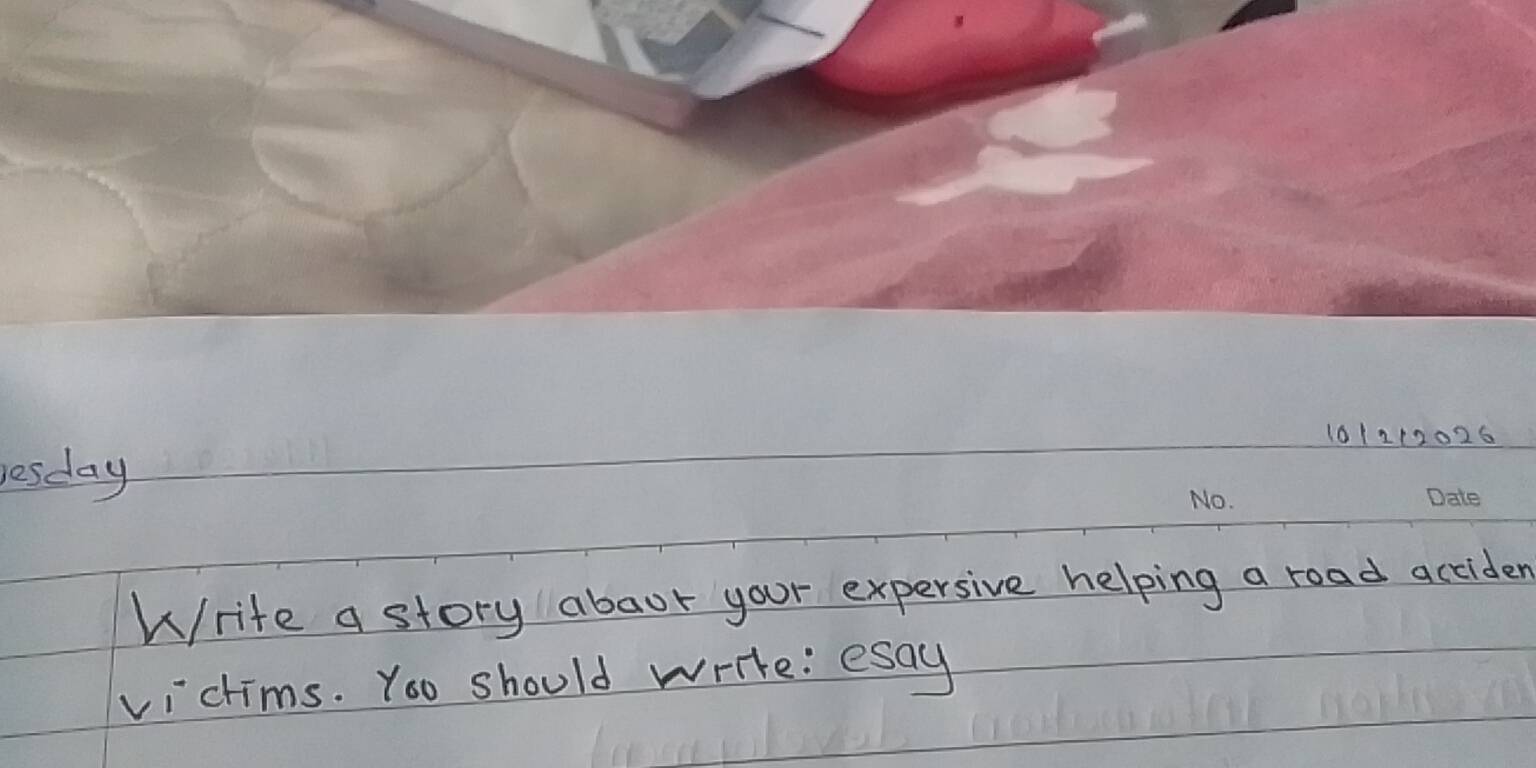 esday
10/2/2026
No. Date
Write a story abaut your expersive helping a road acciden
victims. You should write: esay